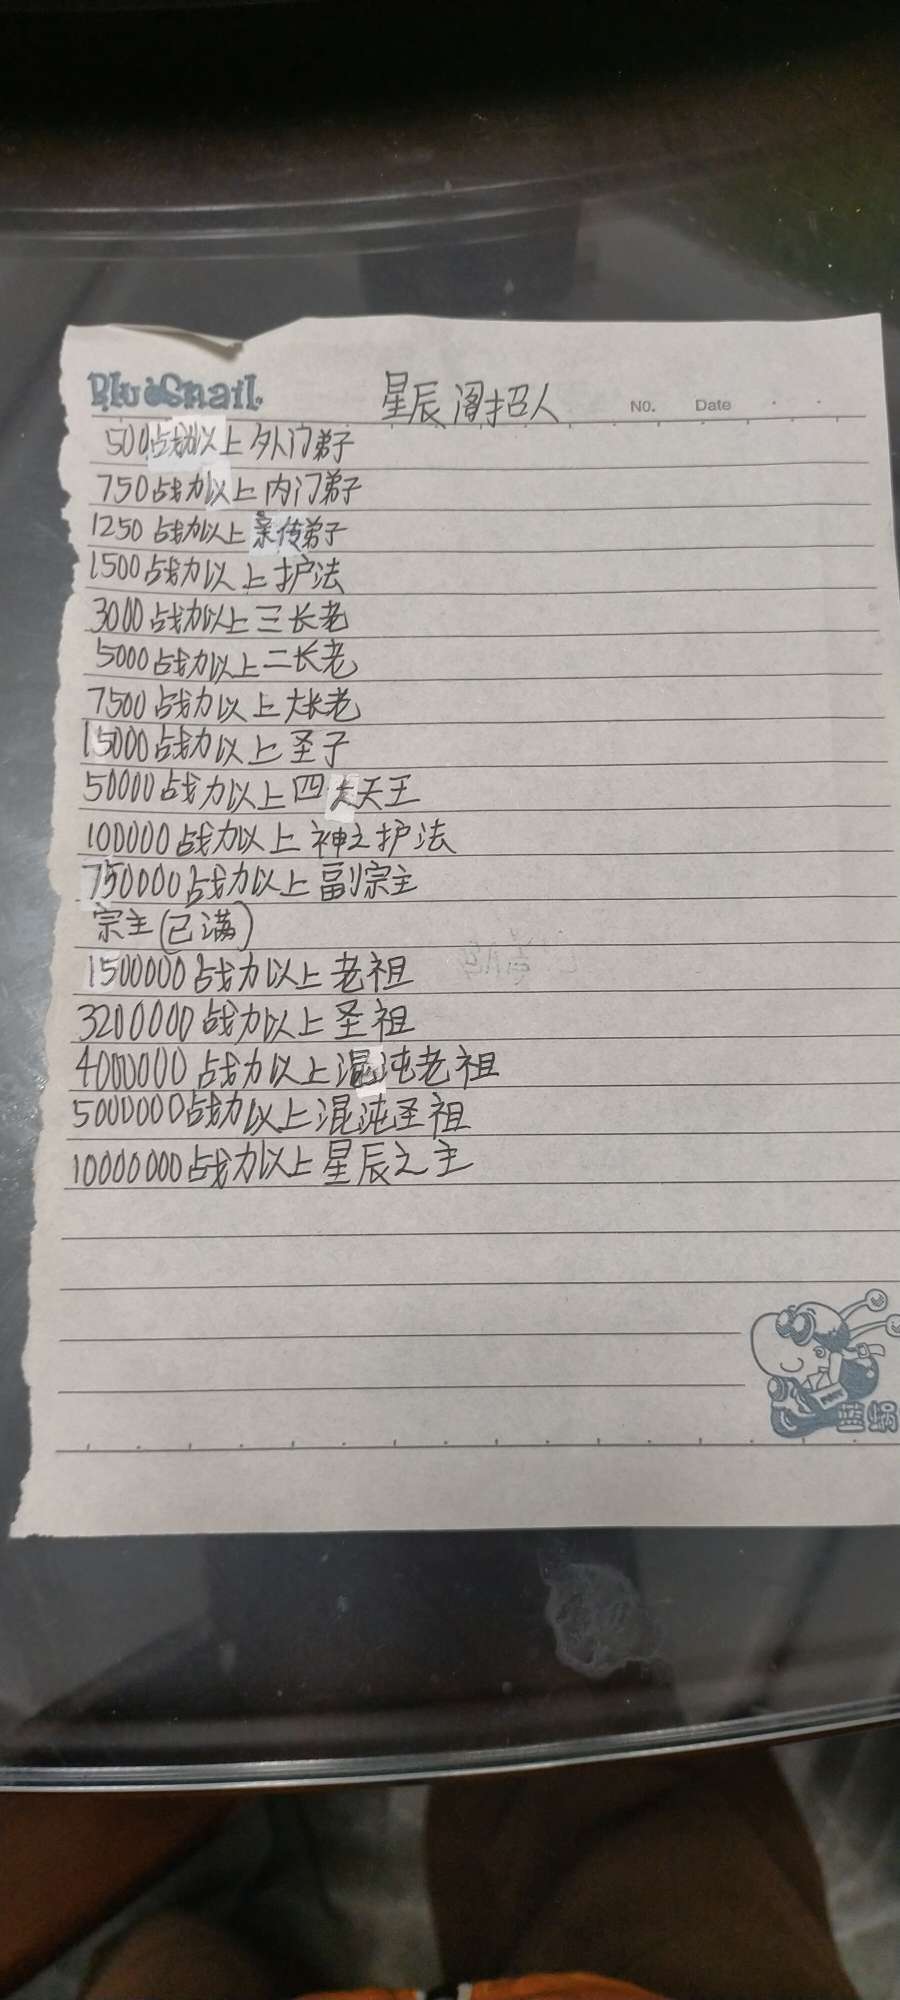 Blue Snail
星辰阁招人
NO. Date
500占战力以上外门弟子
750战力以上内门弟子
1250战力以上亲传弟子
1500战力以上护法
3000战力以上三长老
5000战力以上二长老
7500战力以上大长老
15000战力以上圣子
50000战力以上四大天王
100000战力以上神之护法
750000战力以上副宗主
宗主(已满)
1500000战力以上老祖
3200000战力以上圣祖
4000000战力以上混沌老祖
5000000战力以上混沌圣祖
10000000战力以上星辰之主
蓝蜗